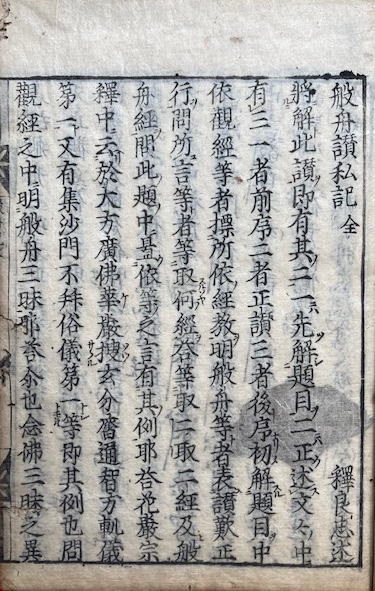 般舟讃私記 全 釋良忠述
將解此讃即有其二一先解題目二正述文々中
有三一者前序二者正讃三者後序初解題目中
依觀經等者標所依經教明般舟等者表讃歎正
行問所言等者等取何經答等取二取二經及般
舟經問此題中置依等之言有其例耶答花嚴宗
釋中云於大方廣佛華嚴搜玄分齊通智方軌儀
第一又有集沙門不拜俗儀第一等即其例也問
觀經之中明般舟三昧耶答尓也念佛三昧之異